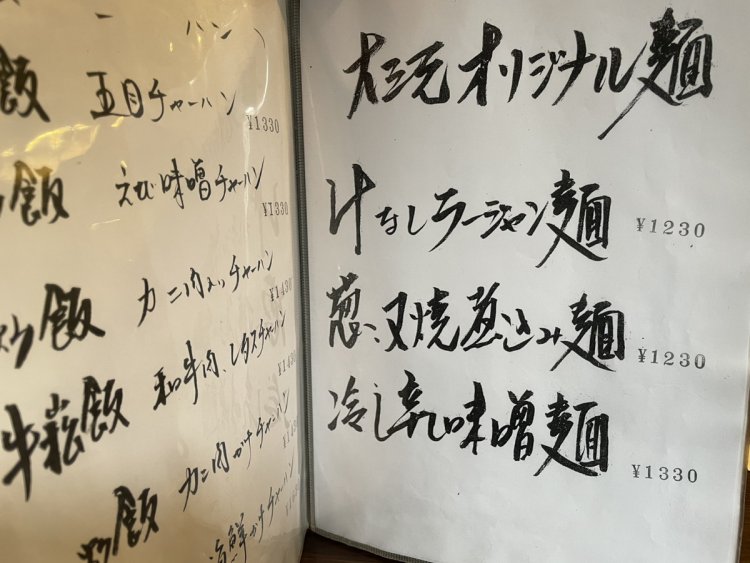 飯 五目チャーハン ¥1330
飯 えび味噌チャーハン ¥1330
炒飯 カニ肉入りチャーハン ¥1430
牛菘飯 和牛肉、レタスチャーハン ¥1430
飯 カニ肉ガチチャーハン
海鮮ガチチャーハン
大三元オリジナル麺
汁なしラージャン麺 ¥1230
葱、叉焼煮込み麺 ¥1230
冷し辛味噌麺 ¥1330